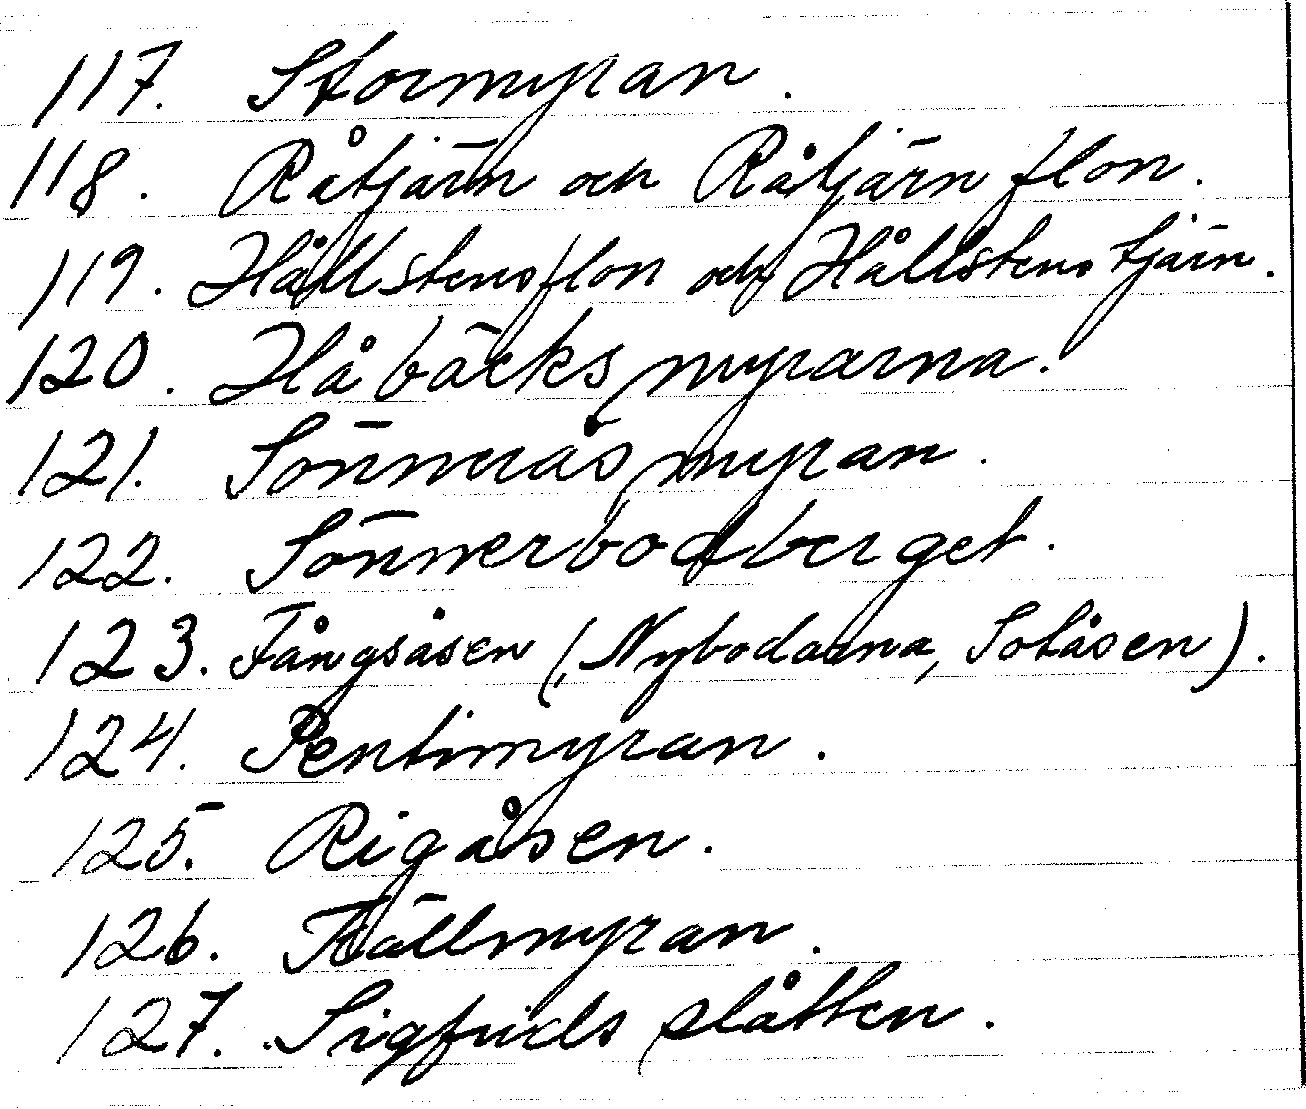 117. Stormyran.
118. Råtjärn och Råtjärnflon.
119. Hållstensflon och Hållstenstjärn.
120. Håbäcksmyrarna.
121. Sönneråsmyran.
122. Sönnerbodberget.
123. Fångsåsen (Nybodarna, Sotåsen).
124. Pentimyran.
125. Rigåsen.
126. Källmyran.
127. Sigfridsslåtten.